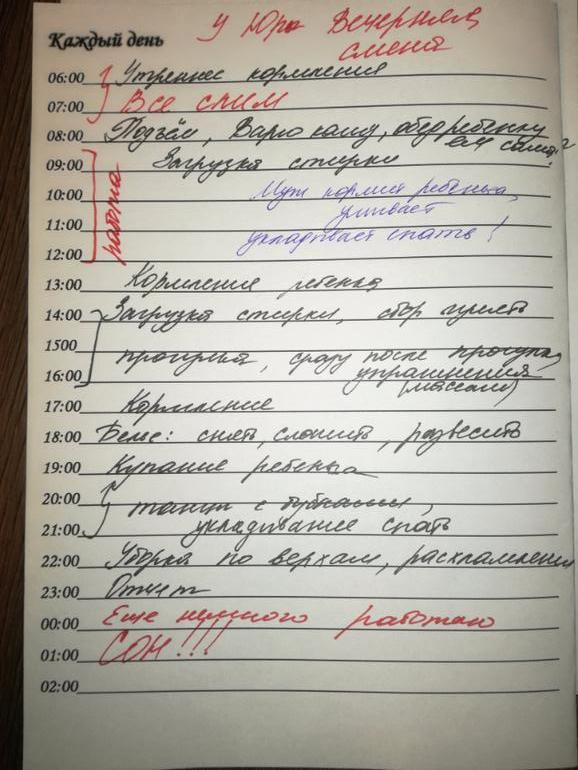 у Юры Вечерняя
смена
Каждый день
06:00 Утреннее кормление
07:00 Все спим
08:00 Подъём, Варю кашу, обед ребенку
ем сама?
09:00 Загрузка стирки
работа
10:00 Муж кормит ребенка,
умывает
11:00 укладывает спать!
12:00
13:00 Кормление ребенка
14:00 Загрузка стирки, сбор гулять
1500 прогулка, сразу после прогулки
16:00 упражнения
(массаж)
17:00 Кормление
18:00 Белье: снять, сложить, развесить
19:00 Купание ребенка
20:00 танцы с бубнами,
21:00 укладывание спать
22:00 Уборка по верхам, расхламление
23:00 Отчет
00:00 Еще немного работаю
01:00 СОН!!!
02:00